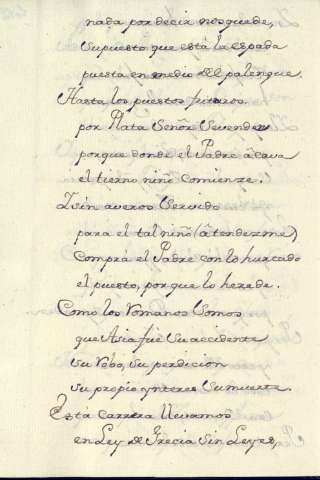 nada por decir nosquede,
supuesto que està la espada
puesta en medio del palenque.
Hasta los puestos futuros
por Plata Señor sevenden
porque donde el Padre acava
el tierno niño comienze.
I sin averos servido
para el tal niño (atendezme)
Comprà el Padre con lo hurtado
el puesto, por que lo herede.
Como los Romanos somos
que Asia fuè su accidente
su robo, su perdicion
su propio ynteres su muerte.
Està carrera llevamos
en Ley de Grecia sin Leyes,